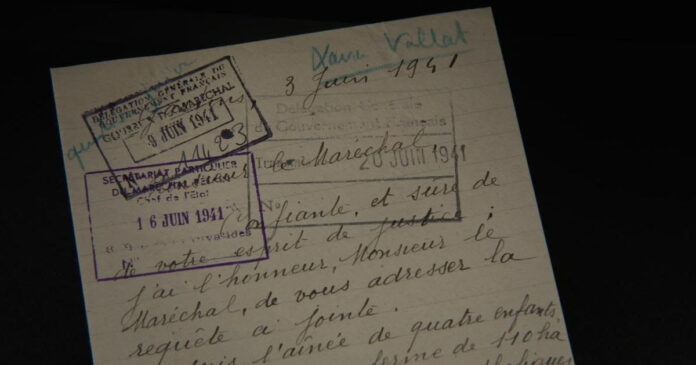 Xavier Vallat
3 Juin 1941
DÉLÉGATION GÉNÉRALE DU
GOUVERNEMENT FRANÇAIS
DU MARÉCHAL
9 JUIN 1941
11423
Délégation Générale
du Gouvernement Français
20 JUIN 1941
No
le Maréchal
SECRÉTARIAT PARTICULIER
DU MARÉCHAL PÉTAIN
Chef de l'État
16 JUIN 1941
N°
Confiante, et sûre de
de votre esprit de justice ;
j'ai l'honneur, Monsieur le
Maréchal, de vous adresser la
requête ci jointe.
l'aînée de quatre enfants,
ferme de 110 ha